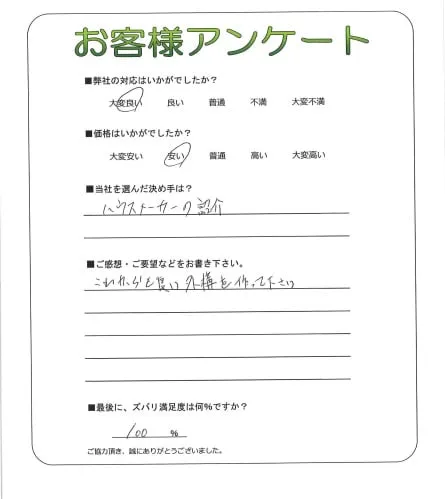 お客様アンケート
■弊社の対応はいかがでしたか？
大変良い 良い 普通 不満 大変不満
■価格はいかがでしたか？
大変安い 安い 普通 高い 大変高い
■当社を選んだ決め手は？
ハウスメーカーの紹介
■ご感想・ご要望などをお書き下さい。
これからも良い外構を作って下さい
■最後に、ズバリ満足度は何％ですか？
100 %
ご協力頂き、誠にありがとうございました。